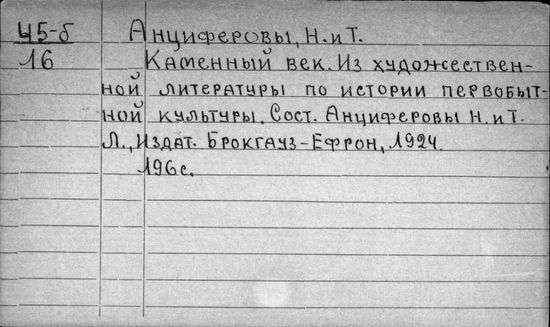 Ч5-б Анциферовы, Н. и Т.
16 Каменный век. Из художествен-
ной литературы по истории первобыт-
ной культуры. Сост. Анциферовы Н. и Т.
Л., Издат. Брокгауз-Ефрон, 1924.
196 с.